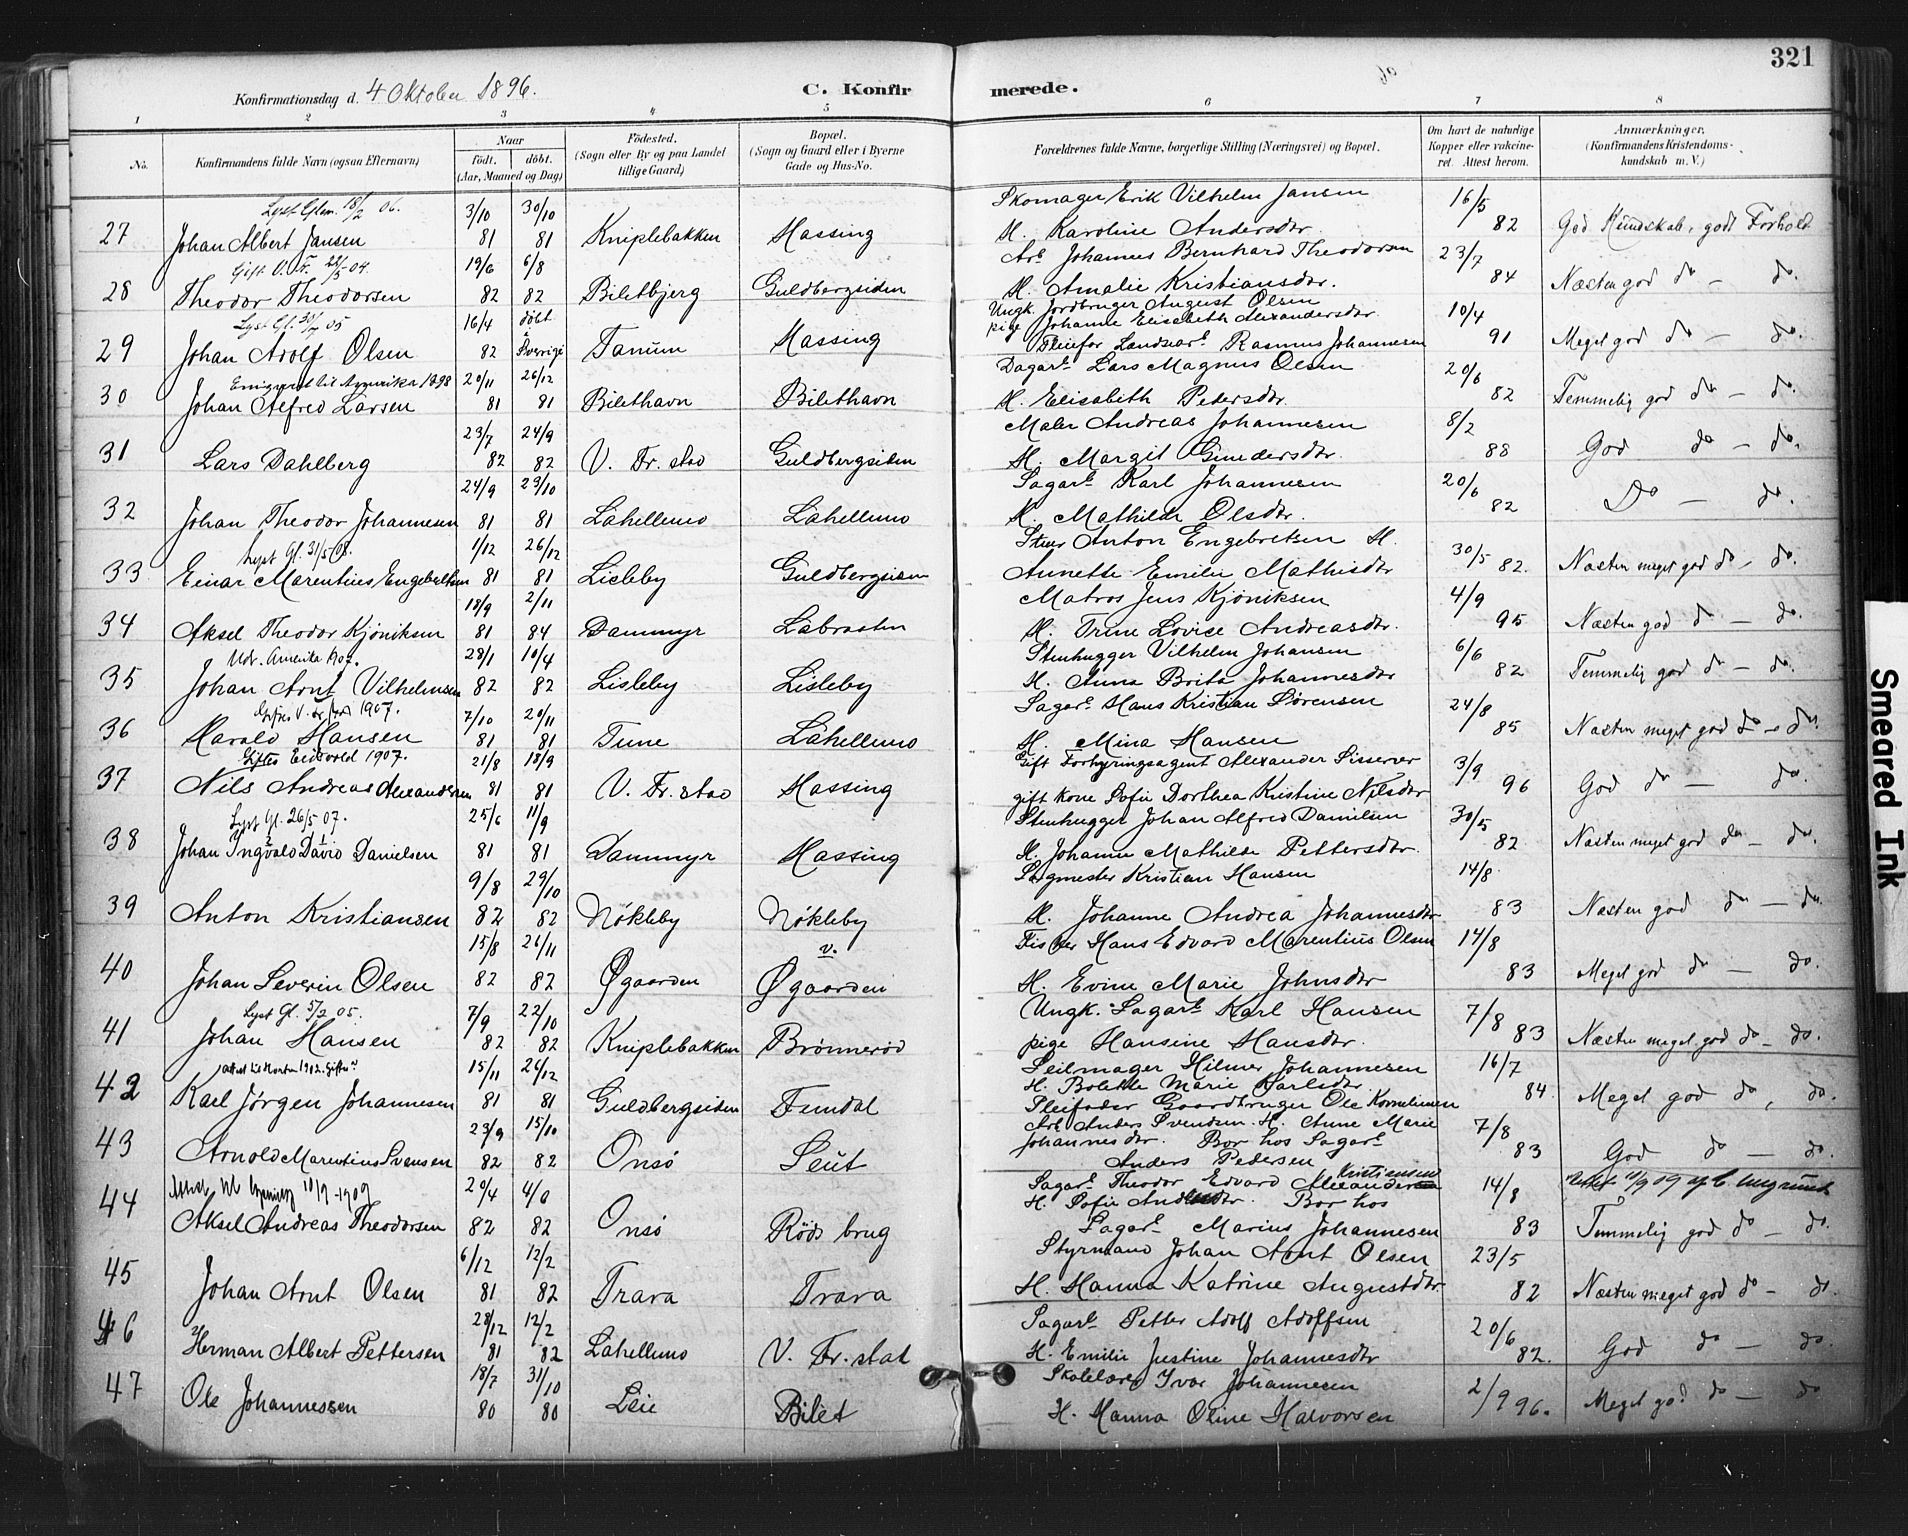 321
Konfirmationsdag d. 4 Oktober 1896.
C. Konfirmerede.
1 2 3 4 5 6 7 8
No.
Konfirmandens fulde Navn (ogsaa Efternavn)
Naar
født. døbt.
(Aar, Maaned og Dag)
Födested.
(Sogn eller By og paa Landet tillige Gaard)
Bopæl.
(Sogn og Gaard eller i Byerne Gade og Hus-No.
Forældrenes fulde Navne, borgerlige Stilling (Næringsvei) og Bopæl.
Om havt de naturlige Kopper eller vaccineret. Attest herom.
Anmærkninger,
(Konfirmandens Kristendomskundskab m. V.)
Lyst Glem. 18/2 06.
27 Johan Albert Jansen 3/10 81 30/10 81 Kniplebakken Hassing Skomager Erik Vilhelm Jansen
H. Karoline Andersdtr. 16/5 82 God Kundskab, godt Forhold
Gift V. Fr. 22/5 04.
28 Theodor Theodorsen 19/6 82 6/8 82 Biletbjerg Guldbergsiden Arb. Johannes Bernhard Theodorsen
H. Amalie Kristiansdtr. 23/7 84 Næsten god do — do.
29 Johan Adolf Olsen 16/4 82 döbt i Sverrige Tanum Hassing Ungk. Jordbruger August Olsen
pige Johanne Elisabeth Alexandersdtr.
Pleiefar Landsarb. Rasmus Johannesen 10/4 91 Meget god do — do.
Emigreret til Amerika 1898
30 Johan Alfred Larsen 20/11 81 26/12 81 Bilethavn Bilethavn Dagarb. Lars Magnus Olsen
H. Elisabeth Pedersdtr. 20/6 82 Temmelig god do — do.
31 Lars Dahlberg 23/7 82 24/9 82 V. Fr. stad Guldbergsiden Maler Andreas Johannesen
H. Margit Gundersdtr. 8/2 88 God do — do.
32 Johan Theodor Johannesen 24/9 81 23/10 81 Lahellmo Lahellmo Sagarb. Karl Johannesen
H. Mathilde Olsdtr. 20/6 82 Do — do.
Lyst Gl. 31/5 08.
33 Einar Marentius Engebretsen 1/12 81 26/12 81 Lisleby Guldbergsien Stuer Anton Engebretsen H.
Annette Emilie Mathisdtr 30/5 82. Næsten meget god do - do.
34 Aksel Theodor Kjöniksen 18/9 81 2/11 84 Dammyr Labrasten Matros Jens Kjöniksen
H. Trine Lovice Andreasdtr. 4/9 95 Næsten god do — do.
Udv. Amerika 1907.
35 Johan Arnt Vilhelmsen 28/1 82 10/4 82 Lisleby Lisleby Stenhugger Vilhelm Johansen
H. Anna Brita Johannesdtr 6/6 82 Temmelig god do — do.
36 Harald Hansen 7/10 81 20/11 81 Tune Lahellmo Sagarb. Hans Kristian Sörensen
H. Mina Hansen 24/8 85 Næsten meget god do - do.
Giftes Eidsvold 1907.
37 Nils Andreas Alexandersen 21/8 81 18/9 81 V. Fr. stad Hassing Gift Forhyringsagent Alexander Sisserer
gift kone Sofie Dorthea Kristine Nilsdtr 3/9 96 God do — do.
Lyst Gl. 26/5 07.
38 Johan Ingvald David Danielsen 25/6 81 11/9 81 Dammyr Hassing Stenhugger Johan Alfred Danielsen
H. Johanne Mathilde Pettersdtr. 30/5 82 Næsten meget god do — do.
39 Anton Kristiansen 9/8 82 29/10 82 Nökleby Nökleby Sagmester Kristian Hansen
H. Johanne Andrea Johannesdtr. 14/8 83 Næsten god do — do.
40 Johan Severin Olsen 15/8 82 26/11 82 Øgaarden v. Øgaarden Fisker Hans Edvard Marentius Olsen
H. Evine Marie Johnsdtr 14/8 83 Meget god do — do.
Lyst Gl. 5/2 05.
41 Johan Hansen 7/9 82 22/10 82 Kniplebakken Brönneröd Ungk. Sagarb. Karl Hansen
pige Hansine Hansdtr. 7/8 83 Næsten meget god do - do.
42 Karl Jörgen Johannesen 15/11 81 26/12 81 Guldbergsiden Femdal Seilmager Hilmer Johannesen
H. Bolette Marie Karlsdtr.
Pleifader Gaardbruger Ole Kornelius­en 16/7 84. Meget god do, do.
43 Arnold Marentius Svensen 23/9 82 15/10 82 Onsö Leut Arb. Anders Svendsen. H. Anne Marie
Johannesdtr. Bor hos Sagarb.
Anders Pedersen 7/8 83 God do — do.
44 Aksel Andreas Theodorsen 20/4 82 4/6 82 Onsö Röds brug Sagarb. Theodor Edvard Kristiansen
H. Sofie Bor hos
Sagarb. Marius Johannesen 14/8 83 Temmelig god do — do.
45 Johan Arnt Olsen 6/12 81 12/2 82 Trara Trara Styrmand Johan Arnt Olsen
H. Hanna Katrine Augustdtr. 23/5 82 Næsten meget god do - do.
46 Herman Albert Pettersen 28/12 81 12/2 82 Lahellmo V. Fr. stad Sagarb. Petter Adolf Adolfsen
H. Emilie Justine Johannesdtr 20/6 82. God do — do.
47 Ole Johannessen 18/7 80 31/10 80 Leie Bilet Skolelærer Ivar Johannesen
H. Hanna Oline Halvorsen 2/9 96. Meget god do — do
Smeared Ink